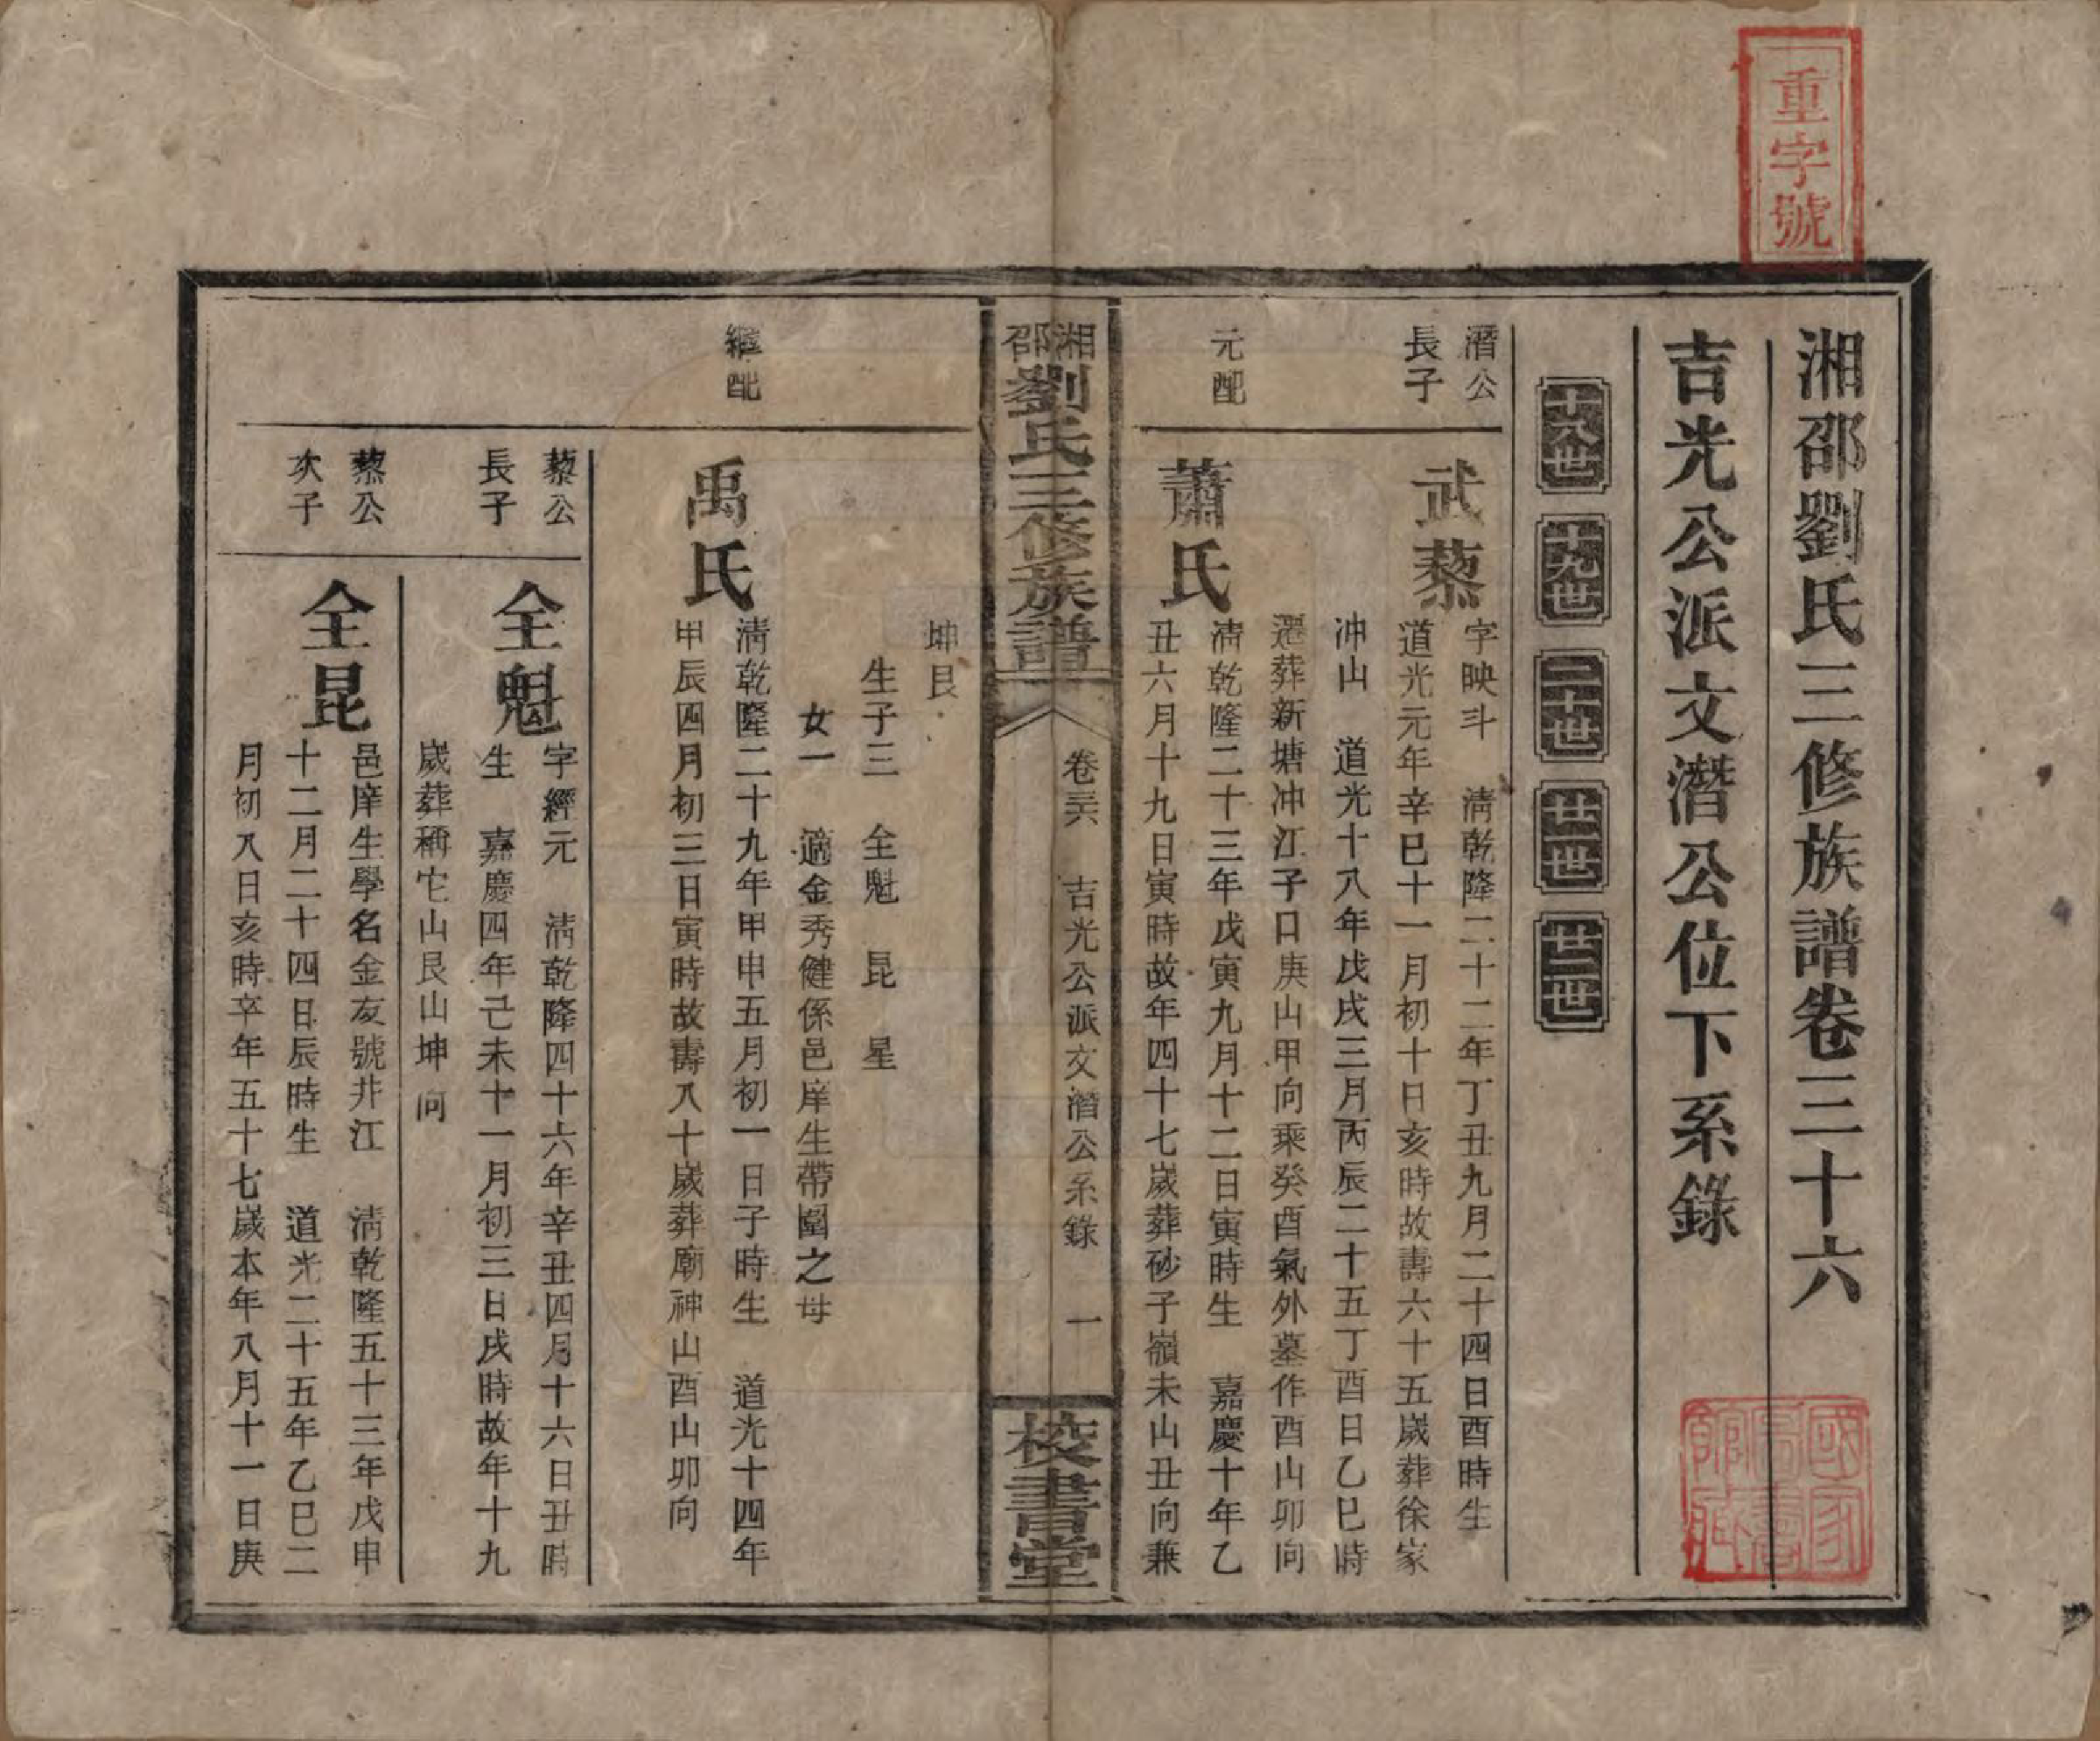 重字號
湘邵劉氏三修族譜卷三十六
國家圖書館藏
吉光公派文潛公位下系錄
十八世 十九世 二十世 廿一世 廿二世
潛公
長子
武藜
字映斗 淸乾隆二十二年丁丑九月二十四日酉時生
道光元年辛巳十一月初十日亥時故壽六十五歲葬徐家
冲山 道光十八年戊戌三月丙辰二十五丁酉日乙巳時
遷葬新塘冲江子口庚山甲向乘癸酉氣外墓作酉山卯向
元配
蕭氏
淸乾隆二十三年戊寅九月十二日寅時生 嘉慶十年乙
丑六月十九日寅時故年四十七歲葬砂子嶺未山丑向兼
湘邵劉氏三修族譜
卷三六 吉光公派文潛公系錄 一
校書堂
坤艮
生子三 全魁 昆 星
女一 適金秀健係邑庠生帶圍之母
繼配
禹氏
淸乾隆二十九年甲申五月初一日子時生 道光十四年
甲辰四月初三日寅時故壽八十歲葬廟神山酉山卯向
藜公
長子
全魁
字經元 淸乾隆四十六年辛丑四月十六日丑時
生 嘉慶四年己未十一月初三日戌時故年十九
歲葬稱它山艮山坤向
藜公
次子
全昆
邑庠生學名金友號非江 淸乾隆五十三年戊申
十二月二十四日辰時生 道光二十五年乙巳二
月初八日亥時卒年五十七歲本年八月十一日庚